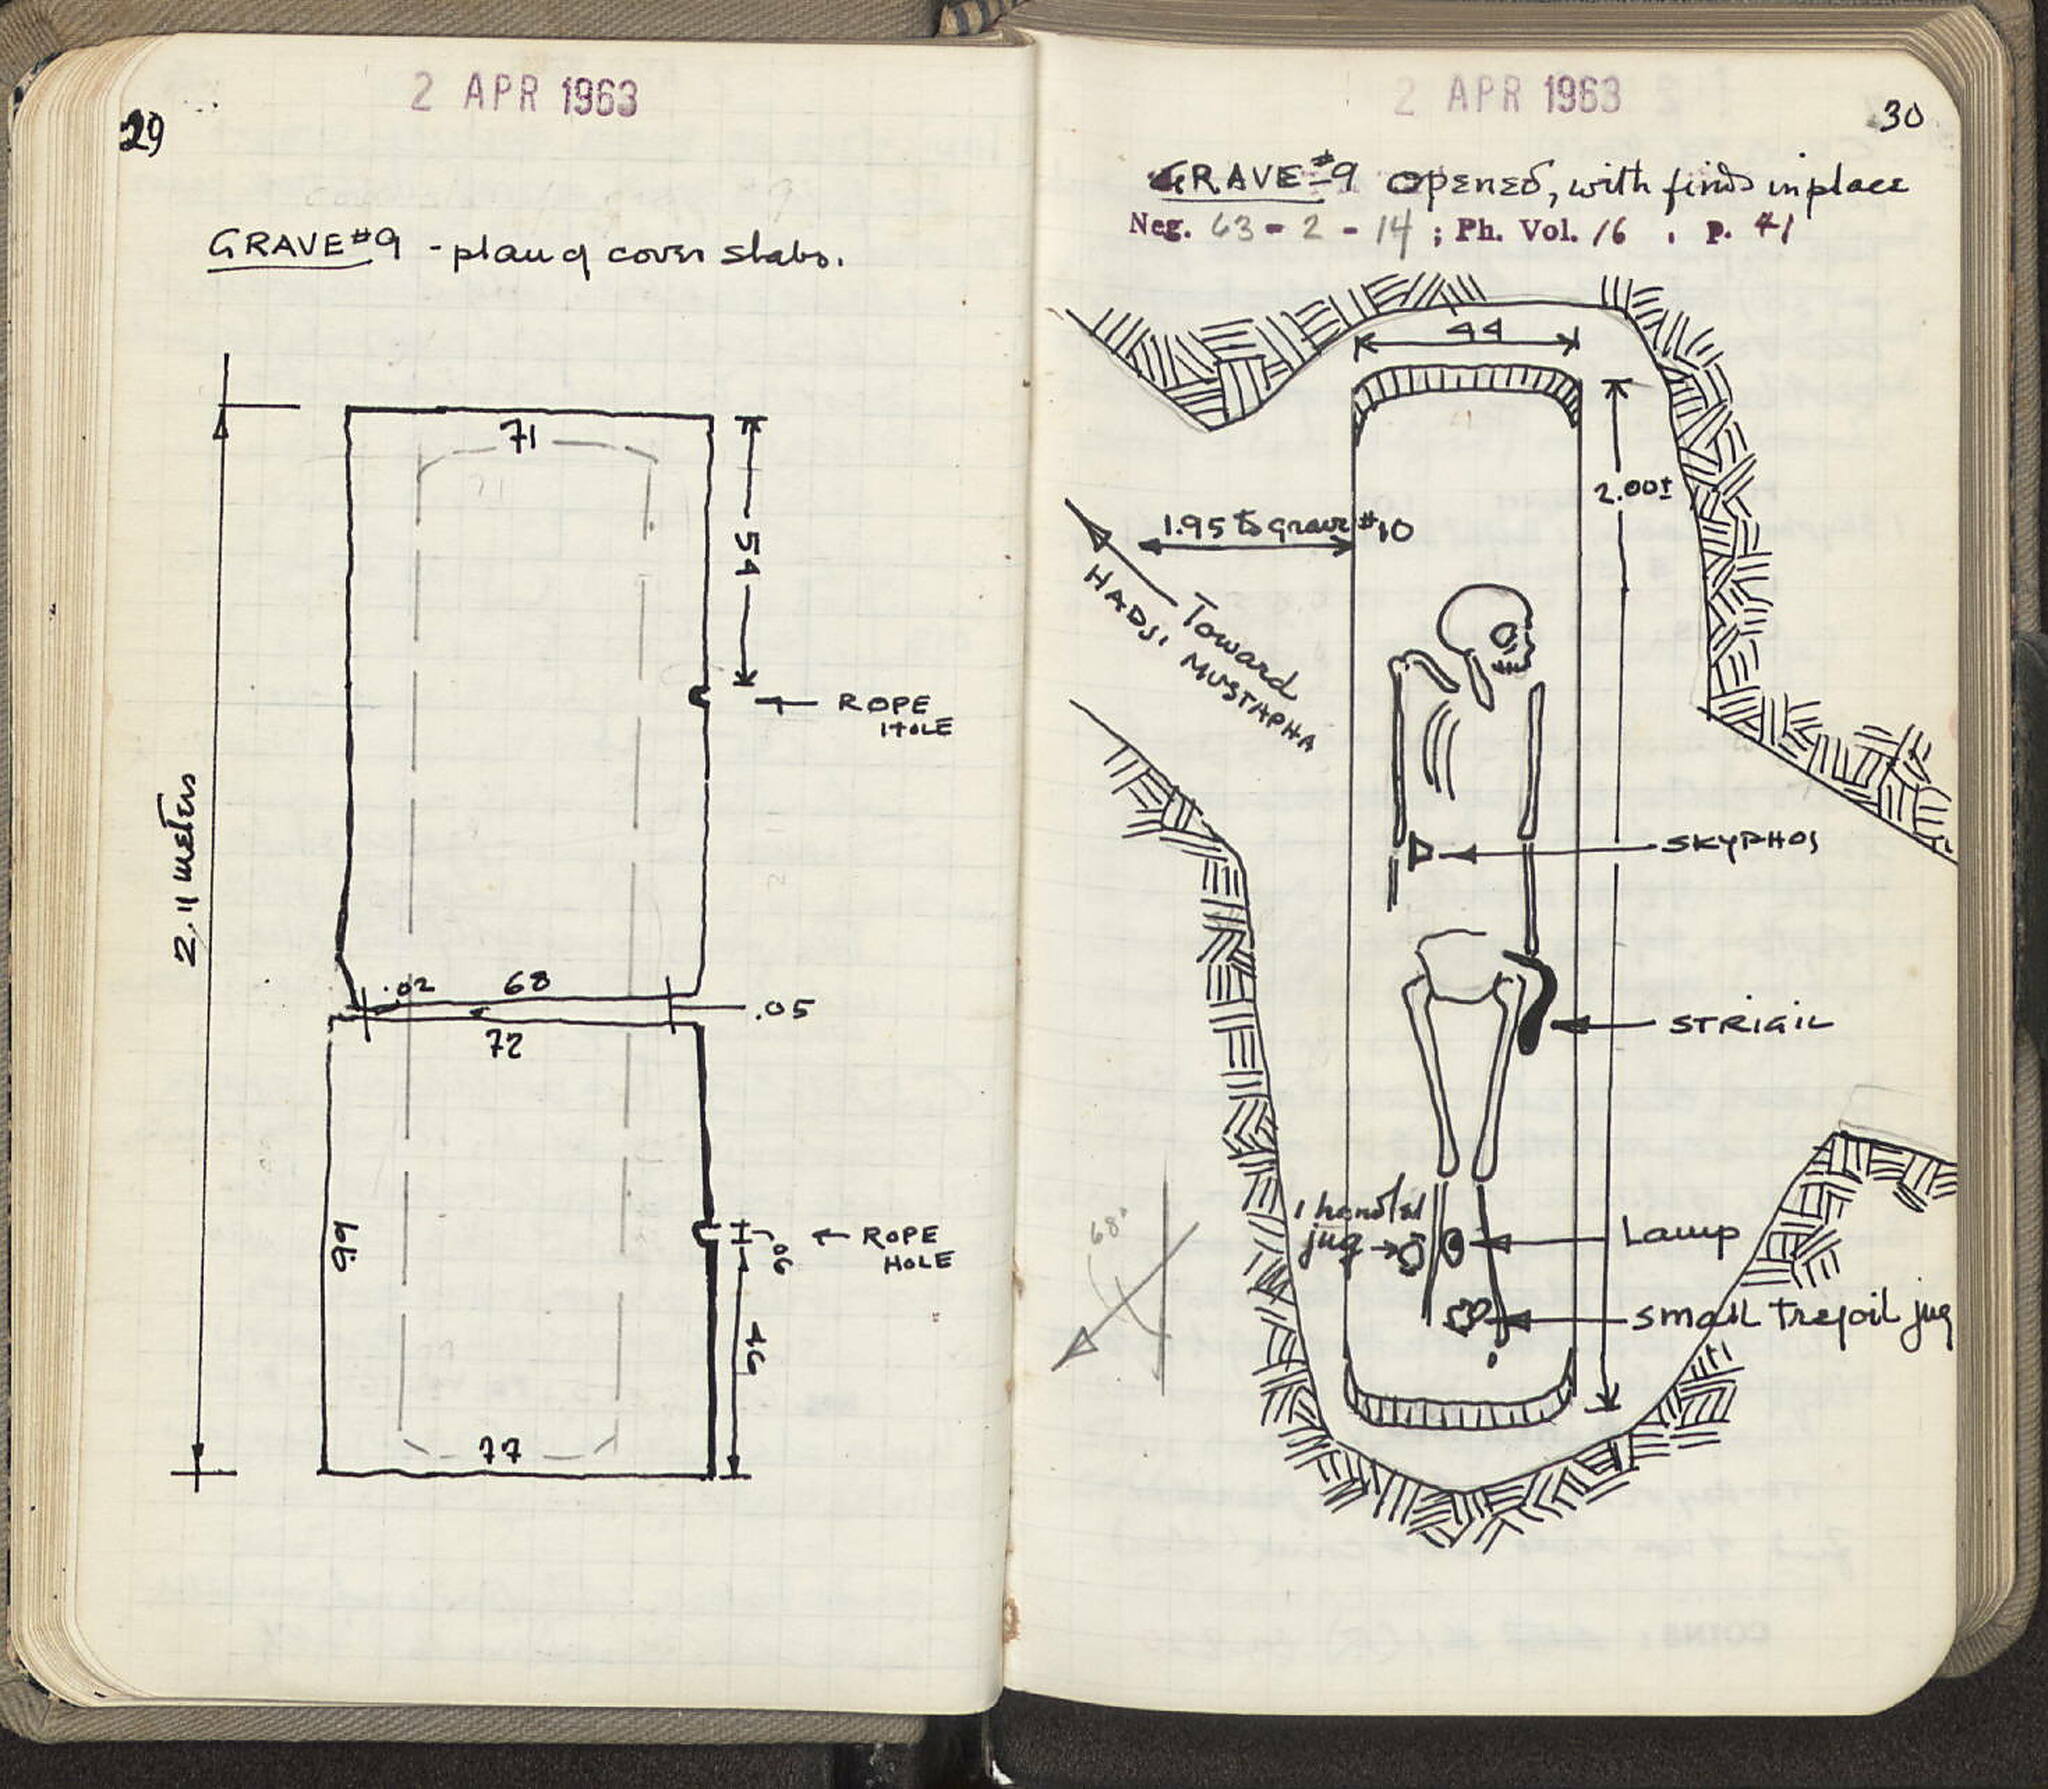 2 APR 1963
29
GRAVE #9 - plan of cover slabs.
71
54
ROPE
HOLE
2.11 meters
.02
68
.05
72
.99
.06
ROPE
HOLE
46
77
2 APR 1963
30
GRAVE #9 opened, with finds in place
Neg. 63 - 2 - 14 ; Ph. Vol. 16 , p. 41
44
2.00±
1.95 to grave #10
Toward
HADJI MUSTAPHA
SKYPHOS
STRIGIL
1 handled
jug
Lamp
68°
small trefoil jug